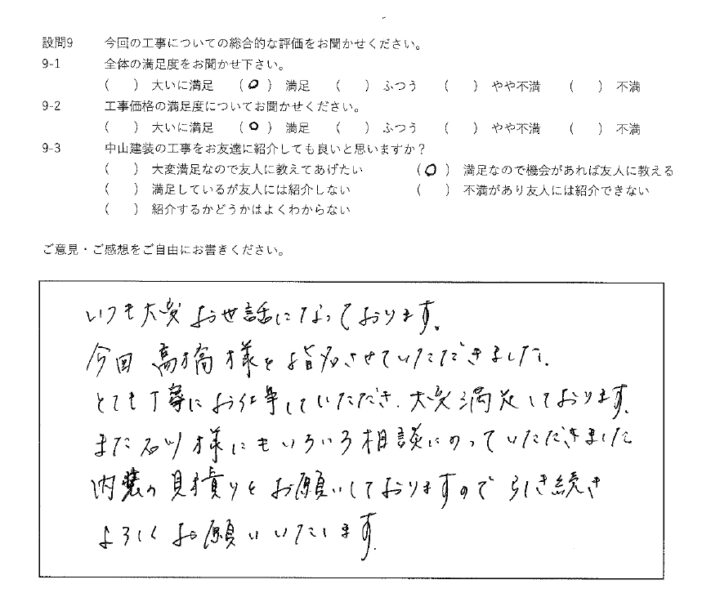 設問9 今回の工事についての総合的な評価をお聞かせください。
9-1 全体の満足度をお聞かせ下さい。
( ) 大いに満足 (○) 満足 ( ) ふつう ( ) やや不満 ( ) 不満
9-2 工事価格の満足度についてお聞かせください。
( ) 大いに満足 (○) 満足 ( ) ふつう ( ) やや不満 ( ) 不満
9-3 中山建装の工事をお友達に紹介しても良いと思いますか？
( ) 大変満足なので友人に教えてあげたい (○) 満足なので機会があれば友人に教える
( ) 満足しているが友人には紹介しない ( ) 不満があり友人には紹介できない
( ) 紹介するかどうかはよくわからない
ご意見・ご感想をご自由にお書きください。
いつも大変お世話になっております。
今回 高橋様を指名させていただきました。
とても丁寧にお仕事していただき、大変満足しております。
また石川様にもいろいろ相談にのっていただきました
内装の見積りをお願いしておりますので引き続き
よろしくお願いいたします。